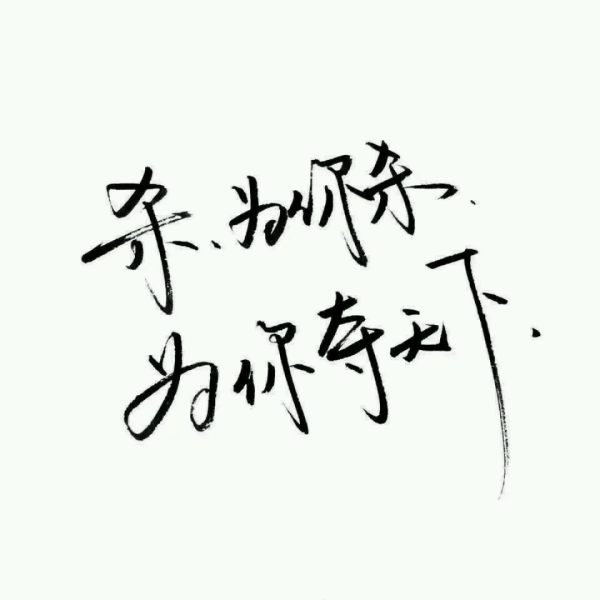 杀、为你杀、
为你夺天下、